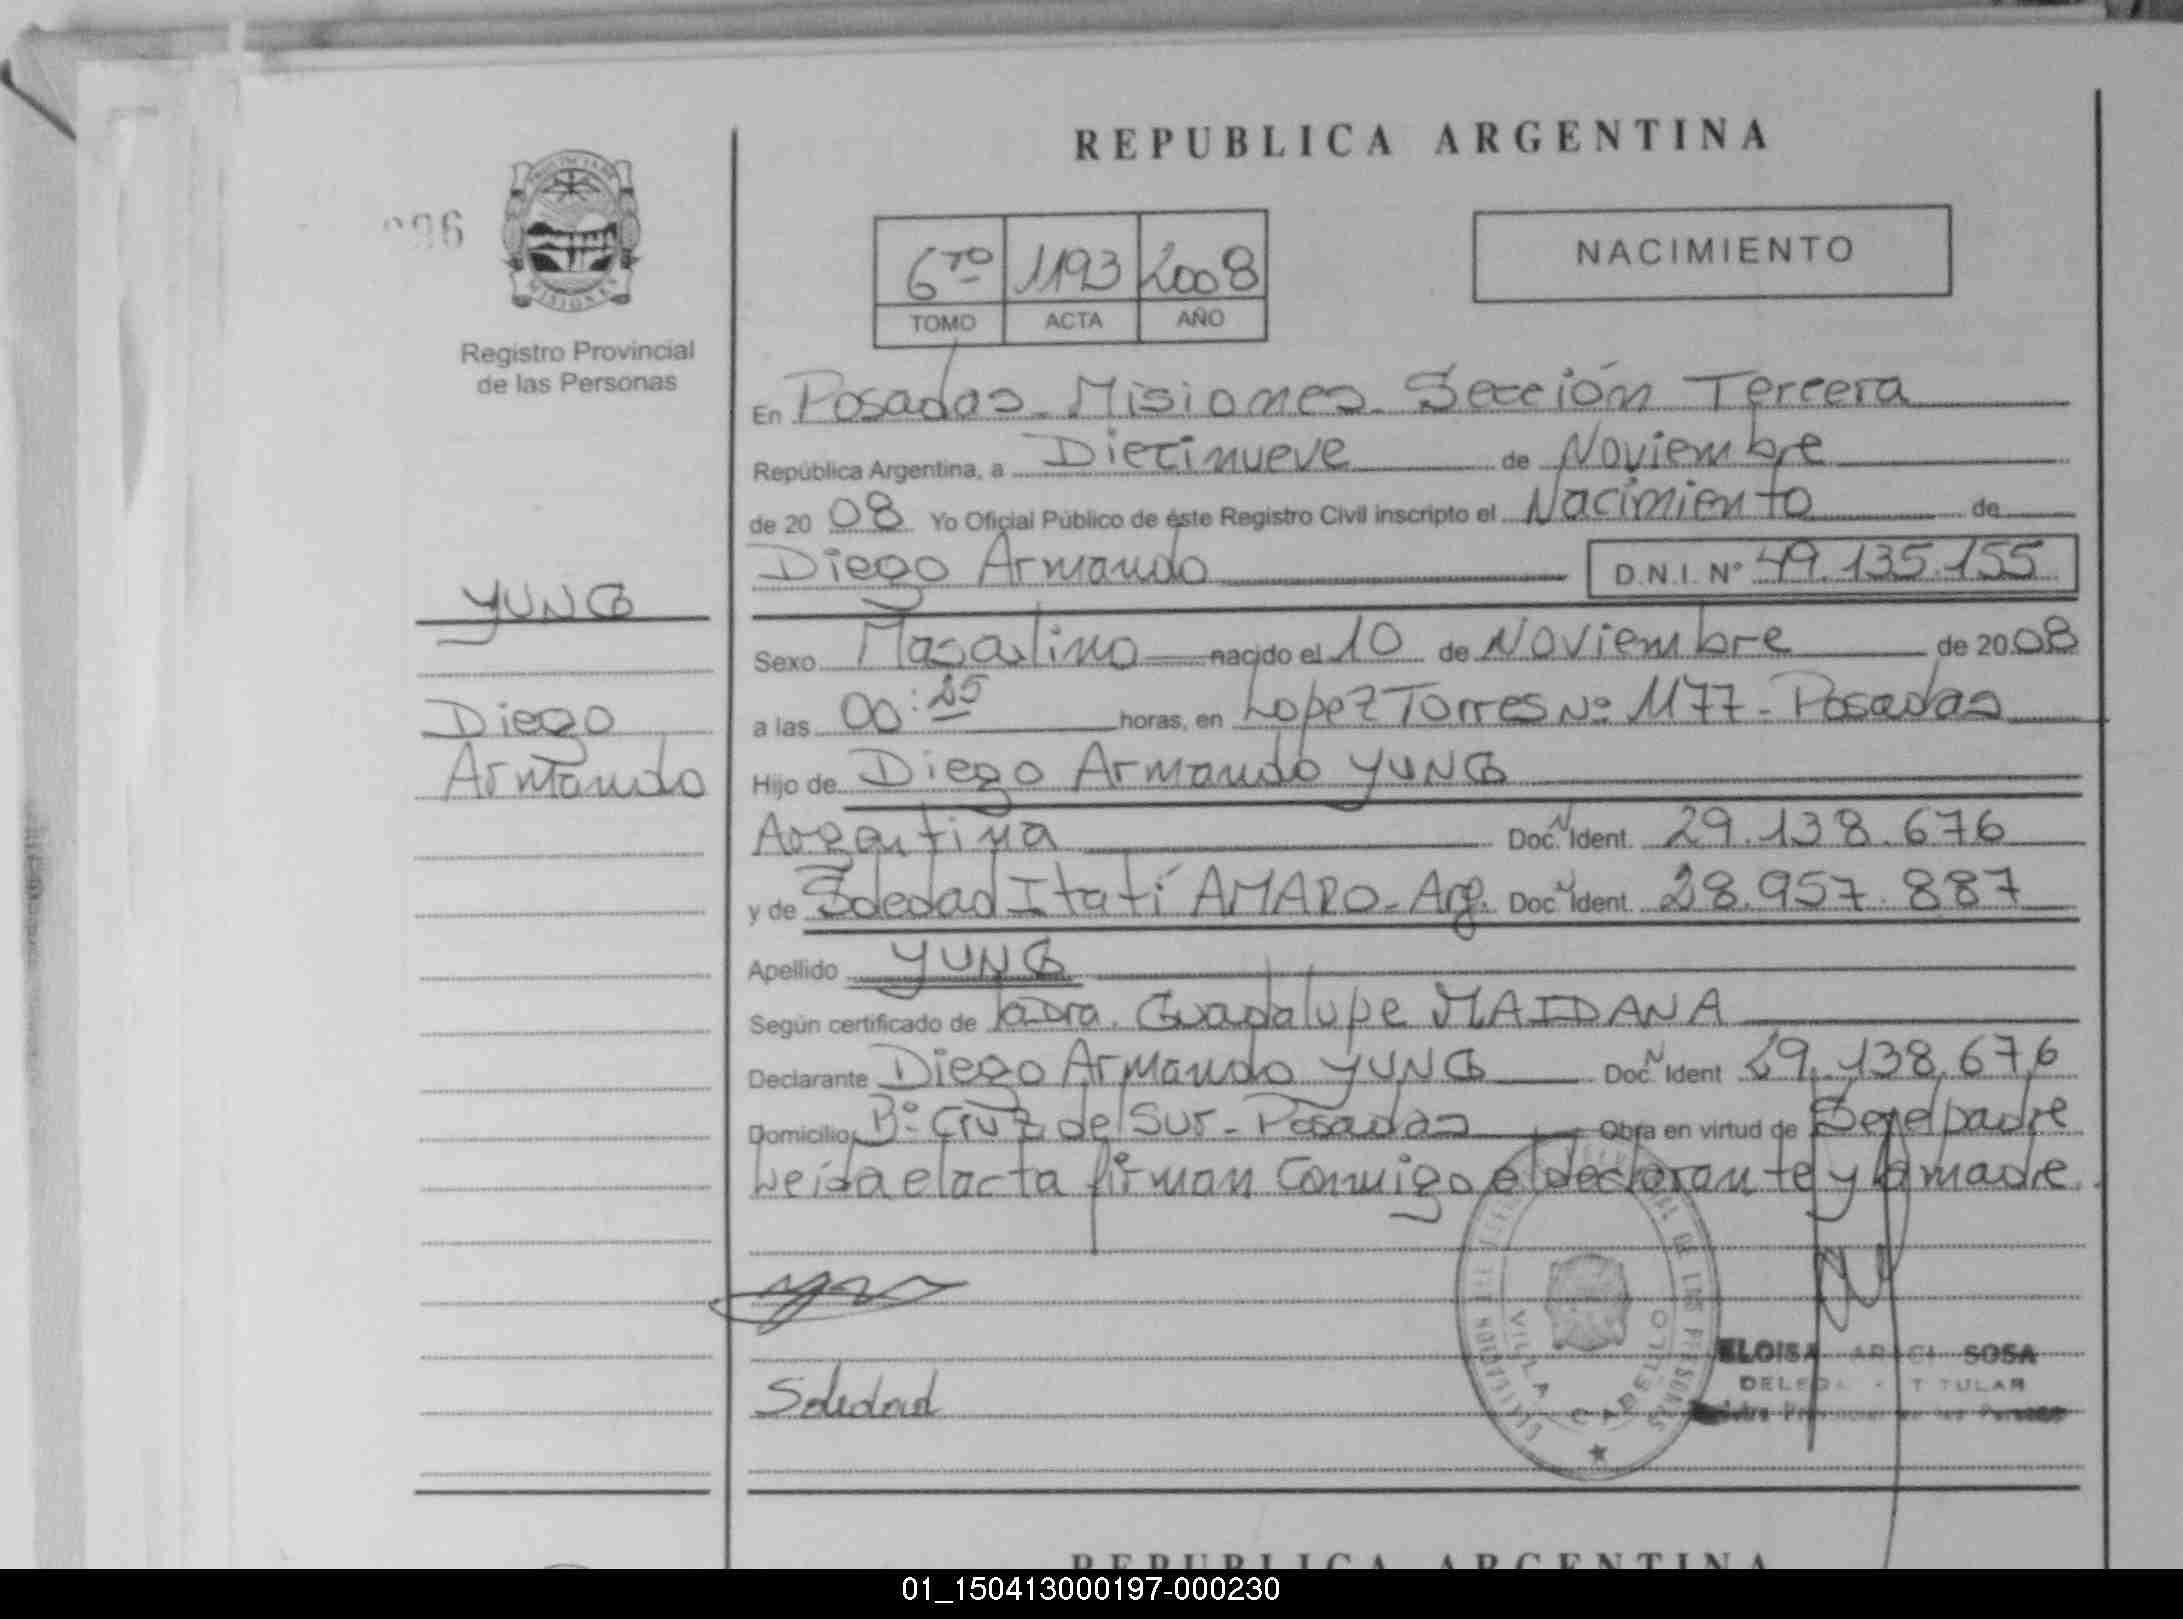 REPUBLICA ARGENTINA
096
PROVINCIA DE
MISIONES
Registro Provincial
de las Personas
NACIMIENTO
6to 1193 2008
TOMO ACTA AÑO
En Posadas - Misiones - Sección Tercera
República Argentina, a Diecinueve de Noviembre
de 20 08 Yo Oficial Público de éste Registro Civil inscripto el Nacimiento de
Diego Armando D.N.I. Nº 49.135.155
YUNG
Diego
Armando
Sexo Masculino nacido el 10 de Noviembre de 20 08
a las 00:25 horas, en Lopez Torres Nº 1177 - Posadas
Hijo de Diego Armando YUNG
Argentina Doc. N Ident. 29.138.676
y de Soledad Itatí AMARO - Arg. Doc. N Ident. 28.957.887
Apellido YUNG
Según certificado de la Dra. Guadalupe MAIDANA
Declarante Diego Armando YUNG Doc. N Ident 29.138.676
Domicilio Bº Cruz del Sur - Posadas Obra en virtud de Ser el padre
Leída el acta firman conmigo el declarante y la madre.
Soledad
VILLA CABELLO
ELOISA SOSA
DELEGADA TITULAR
REPUBLICA ARGENTINA
01_150413000197-000230